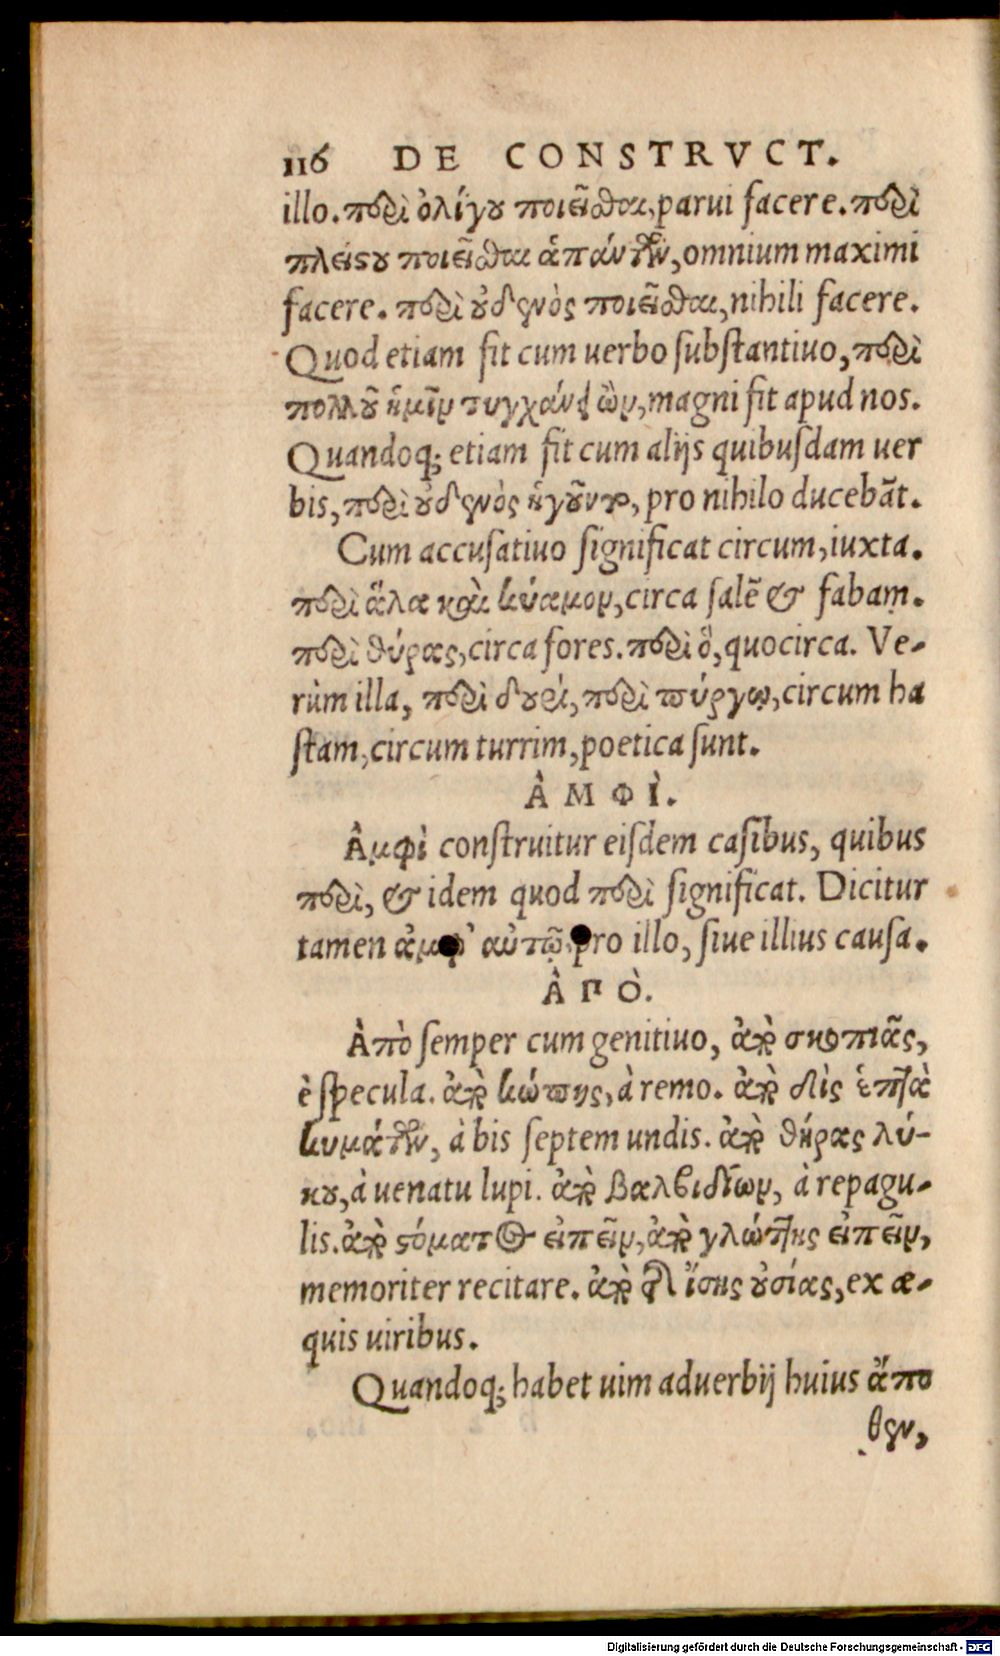 116 DE CONSTRVCT.
illo. περὶ ὀλίγου ποιεῖσθαι, parui facere. περὶ
πλείστου ποιεῖσθαι ἁπάντων, omnium maximi
facere. περὶ οὐδενὸς ποιεῖσθαι, nihili facere.
Quod etiam fit cum uerbo substantiuo, περὶ
πολλοῦ ἡμῖν τυγχάνει ὢν, magni fit apud nos.
Quandoq; etiam fit cum alijs quibusdam uer
bis, περὶ οὐδενὸς ἡγοῦντο, pro nihilo ducebāt.
Cum accusatiuo significat circum, iuxta.
περὶ ἅλα καὶ κύαμον, circa salē & fabam.
περὶ θύρας, circa fores. περὶ ὃ, quocirca. Ve-
rùm illa, περὶ δουρί, περὶ πύργῳ, circum ha
stam, circum turrim, poetica sunt.
ἈΜΦῚ.
Ἀμφὶ construitur eisdem casibus, quibus
περὶ, & idem quod περὶ significat. Dicitur
tamen ἀμφ' αὐτῷ pro illo, siue illius causa.
ἈΠῸ.
Ἀπὸ semper cum genitiuo, ἀπὸ σκοπιᾶς,
è specula. ἀπὸ κώπης, à remo. ἀπὸ δὶς ἑπτὰ
κυμάτων, à bis septem undis. ἀπὸ θήρας λύ-
κου, à uenatu lupi. ἀπὸ βαλβιδίων, à repagu-
lis. ἀπὸ στόματος εἰπεῖν, ἀπὸ γλώττης εἰπεῖν,
memoriter recitare. ἀπὸ τῆς ἴσης οὐσίας, ex æ-
quis uiribus.
Quandoq; habet uim aduerbij huius ἄπο
θεν,
Digitalisierung gefördert durch die Deutsche Forschungsgemeinschaft - DFG